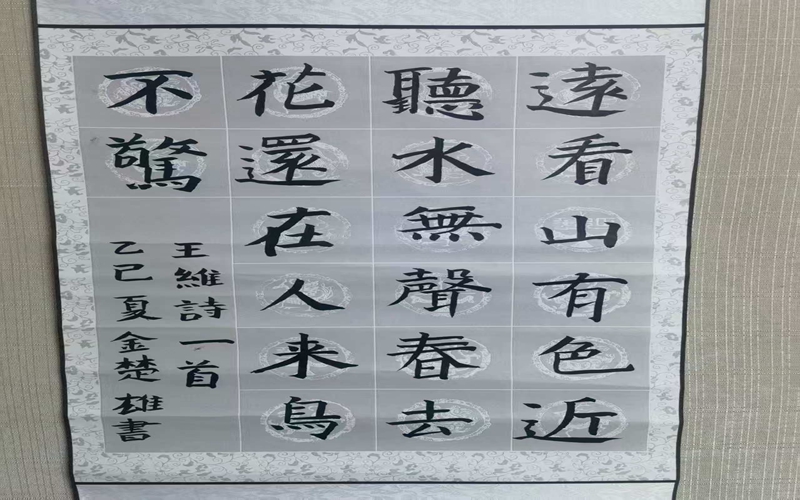 遠看山有色近
聽水無聲春去
花還在人来鳥
不驚
王維詩一首
乙巳夏金楚雄書